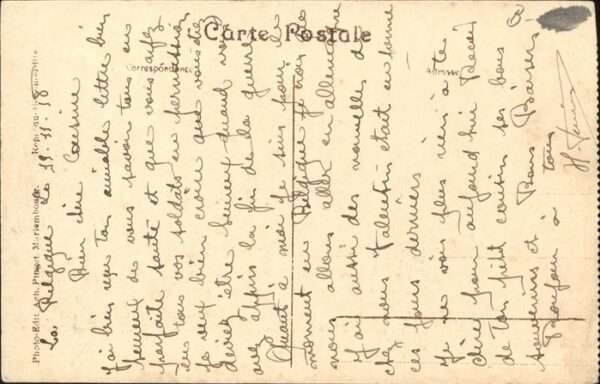 Carte Postale
Correspondance
Adresse
Photo-Edit. Arth. Pinget, Mariembourg.
La Belgique le 19-11-18
Bien chère Cousine
J'ai bien reçu ton aimable lettre bien
heureux de vous savoir tous en
parfaite santé et que vous avez
eu tous vos soldats en permission
Je veux bien croire que vous
devez être heureux quand vous
avez appris la fin de la guerre
Quant à moi je suis pour le
moment en Belgique je crois que
nous allons aller en allemagne
J'ai aussi des nouvelles de
chez nous Valentin était en
ces jours derniers
Je ne vois plus rien à te
dire pour aujourd'hui Reçois
de ton petit cousin ses bons
souvenirs et Bons Baisers
Bonjour à tous